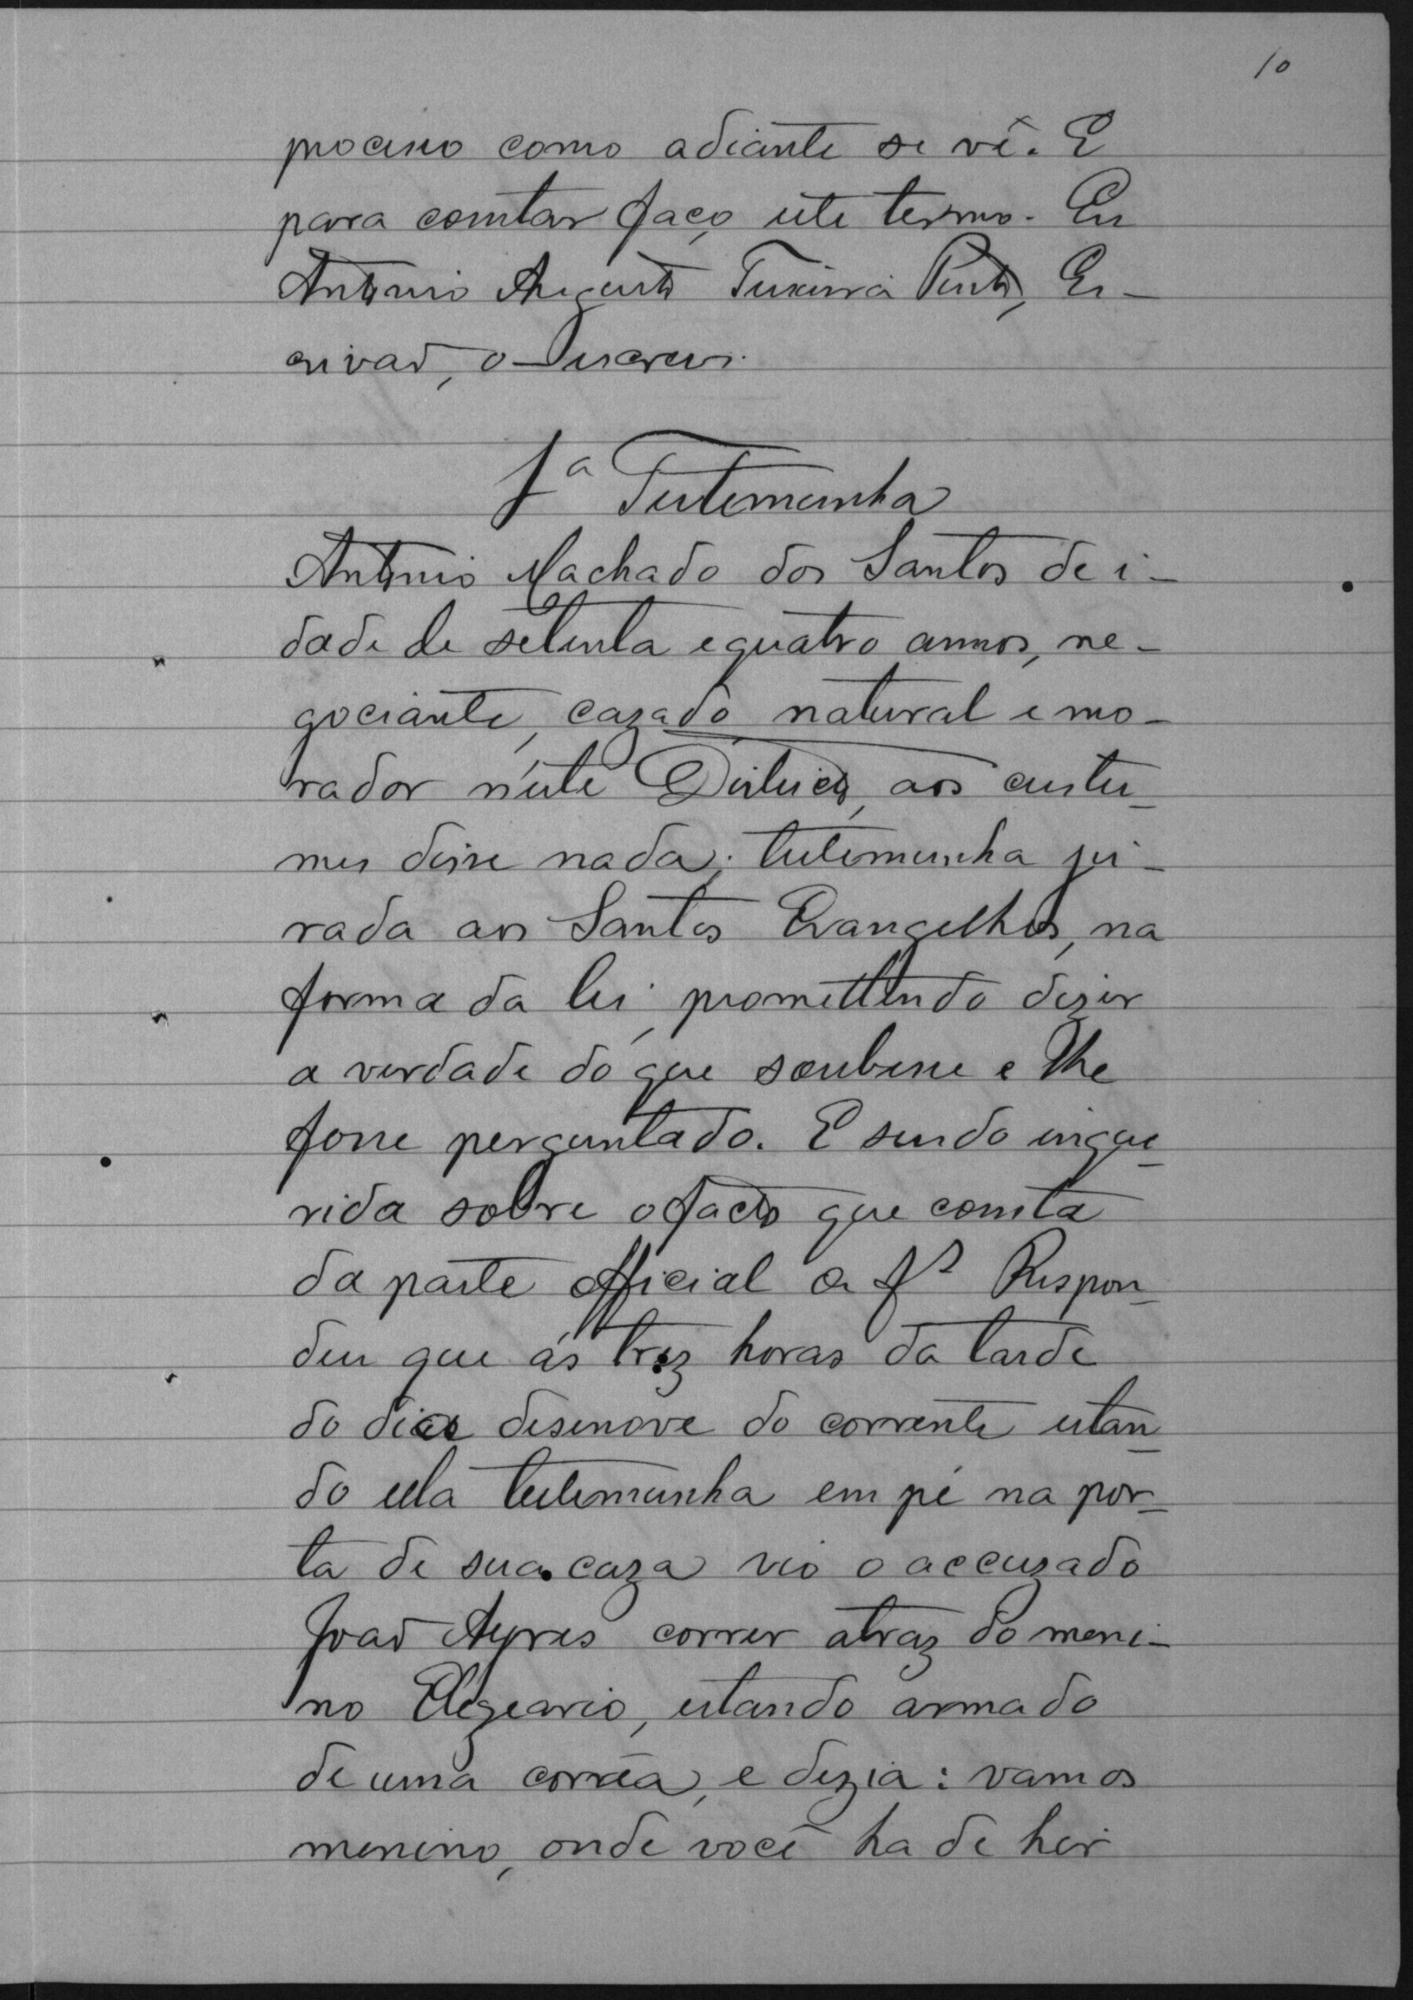 10
processo como adiante se vê. E
para constar faço este termo. Eu
Antonio Augusto Teixeira Pinto, Es-
crivaõ, o escrevi.
1ª Testemunha
Antonio Machado dos Santos de i-
dade de setenta e quatro annos, ne-
gociante, cazado, natural e mo-
rador n'este Districto, aos custu-
mes disse nada; testemunha ju-
rada aos Santos Evangelhos, na
forma da lei, promettendo dizer
a verdade do que soubesse e lhe
fosse perguntado. E sendo inque-
rida sobre o facto que consta
da parte official a fs Respon-
deu que ás trez horas da tarde
do dia desenove do corrente estan-
do ella testemunha em pé na por-
ta de sua caza vio o accuzado
Joaõ Ayres correr atraz do meni-
no Elezeario, estando armado
de uma corrêa, e dezia: vamos
menino, onde você ha de hir